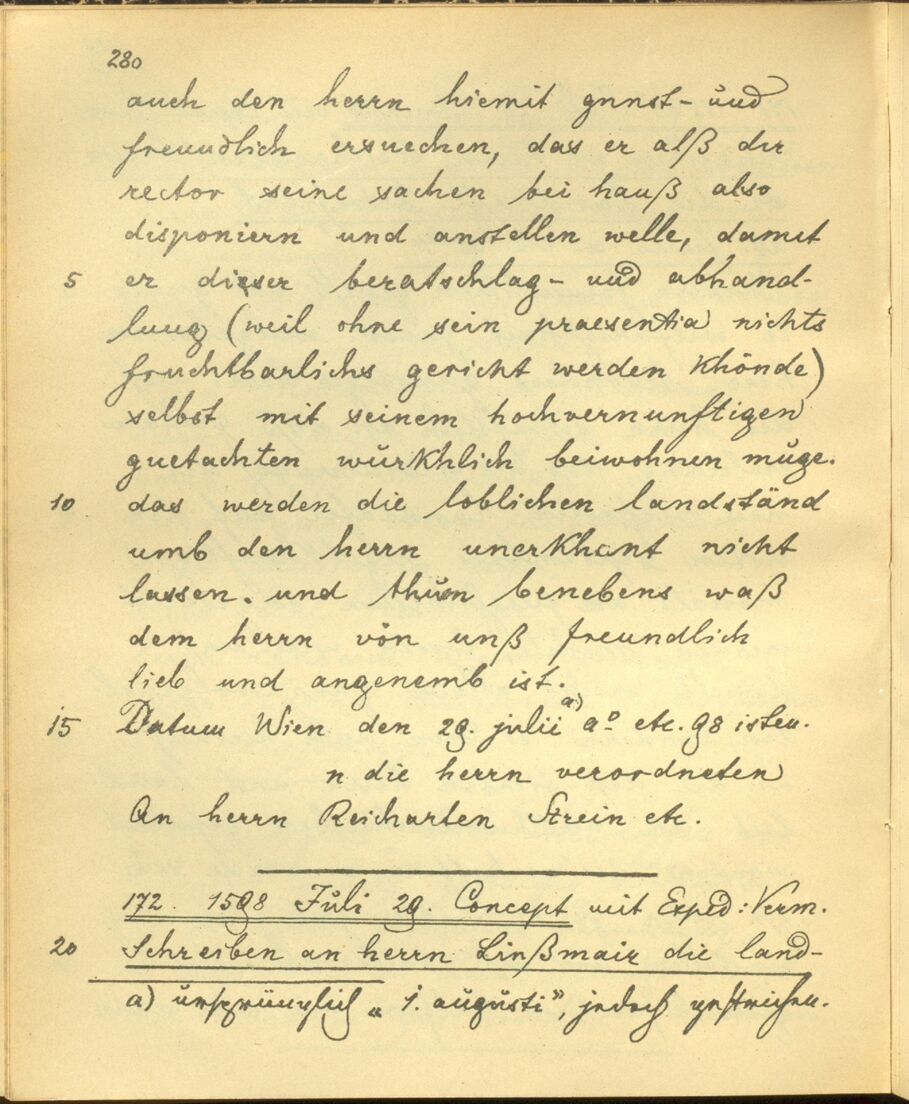 280
auch den herrn hiemit gunst- und
freundlich ersuechen, das er alß der
rector seine sachen bei hauß also
disponiern und anstellen welle, damit
5 er dieser beratschlag- und abhand-
lung (weil ohne sein praesentia nichts
fruchtbarlichs gericht werden khönde)
selbst mit seinem hochvernunftigen
guetachten würkhlich beiwohnen müge.
10 das werden die loblichen landständ
umb den herrn unerkhant nicht
lassen. und thuen benebens waß
dem herrn von unß freundlich
lieb und angenemb ist.
15 Datum Wien den 29. julii a) aº etc. 98 isten.
n die herrn verordneten
An herrn Reicharten Strein etc.
172. 1598 Juli 29. Concept mit Exped: Verm.
20 Schreiben an herrn Linßmair die land-
a) ursprünglich „1. augusti", jedoch gestrichen.